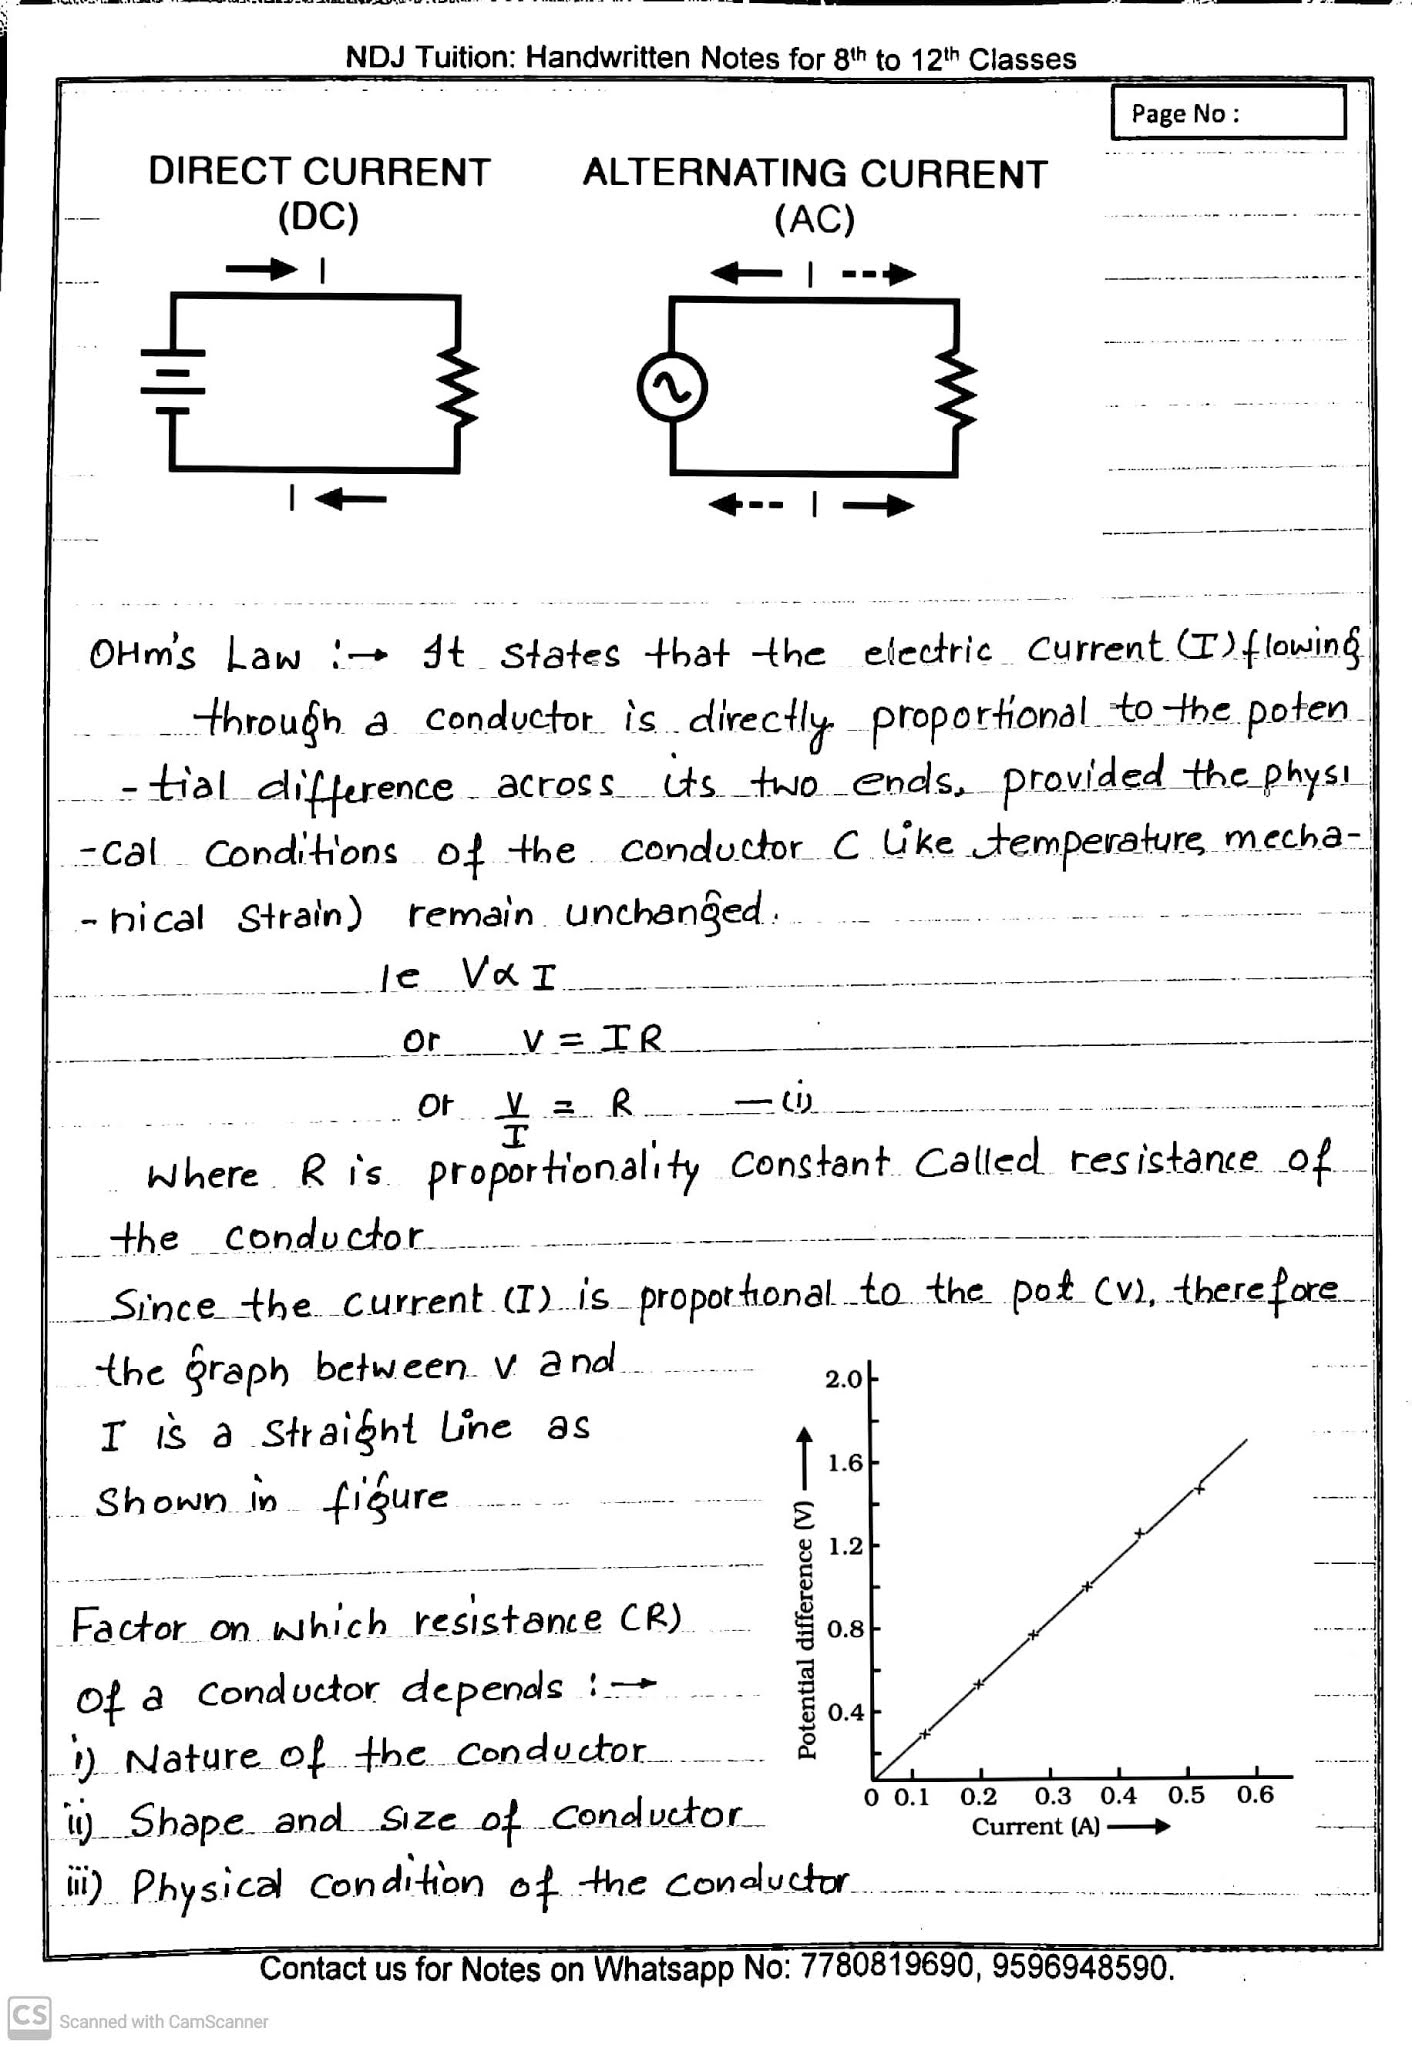 NDJ Tuition: Handwritten Notes for 8th to 12th Classes
Page No :
DIRECT CURRENT
(DC)
ALTERNATING CURRENT
(AC)
→ I
← I --→
I ←
←-- I →
OHm's Law :→ It states that the electric current (I) flowing
through a conductor is directly proportional to the poten
-tial difference across its two ends, provided the physi
-cal conditions of the conductor ( like temperature, mecha-
-nical strain) remain unchanged.
ie V∝I
or V = IR
or V/I = R —(i)
Where R is proportionality constant called resistance of
the conductor
Since the current (I) is proportional to the pot (V), therefore
the graph between V and
I is a straight line as
shown in figure
2.0
1.6
1.2
0.8
0.4
Potential difference (V) →
0 0.1 0.2 0.3 0.4 0.5 0.6
Current (A) →
Factor on which resistance (R)
of a conductor depends :→
i) Nature of the conductor
ii) Shape and size of conductor
iii) Physical condition of the conductor
Contact us for Notes on Whatsapp No: 7780819690, 9596948590.
CS Scanned with CamScanner